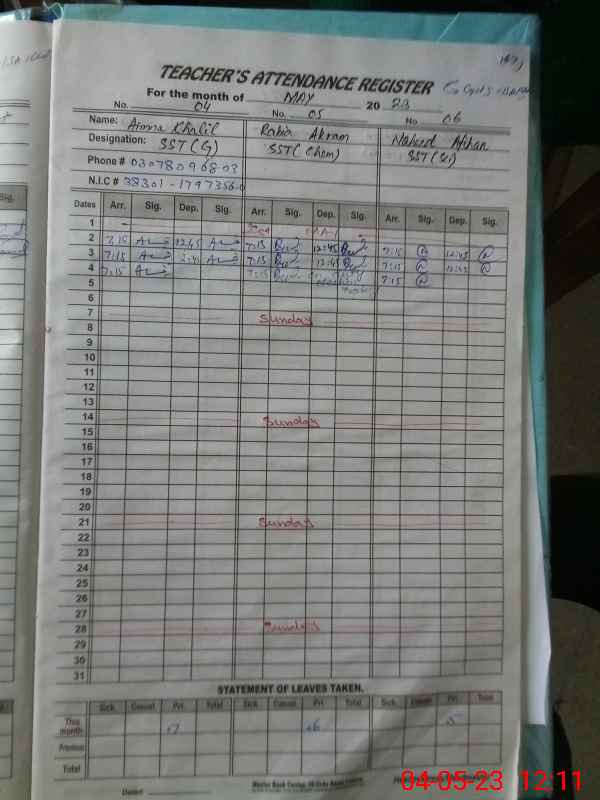 TEACHER'S ATTENDANCE REGISTER
For the month of MAY 20 23
No. 04 No. 05 No 06
Name: Aimna Khalil Rabia Akram Naheed Afshan
Designation: SST(G) SST(Chem) SST(Sc)
Phone # 03078090803
N.I.C # 38301-1797356-0
Dates Arr. Sig. Dep. Sig. Arr. Sig. Dep. Sig. Arr. Sig. Dep. Sig.
1
2 7:15 12:45 7:15 12:45 7:15 12:45
3 7:15 7:15 12:45 7:15 12:45
4 7:15 7:15 7:15
5
6
7 Sunday
8
9
10
11
12
13
14 Sunday
15
16
17
18
19
20
21 Sunday
22
23
24
25
26
27
28 Sunday
29
30
31
STATEMENT OF LEAVES TAKEN.
Sick. Casual Pri. Total Sick. Casual Pri. Total Sick. Casual Pri. Total
This month
Previous
Total
Dated
04-05-23 12:11